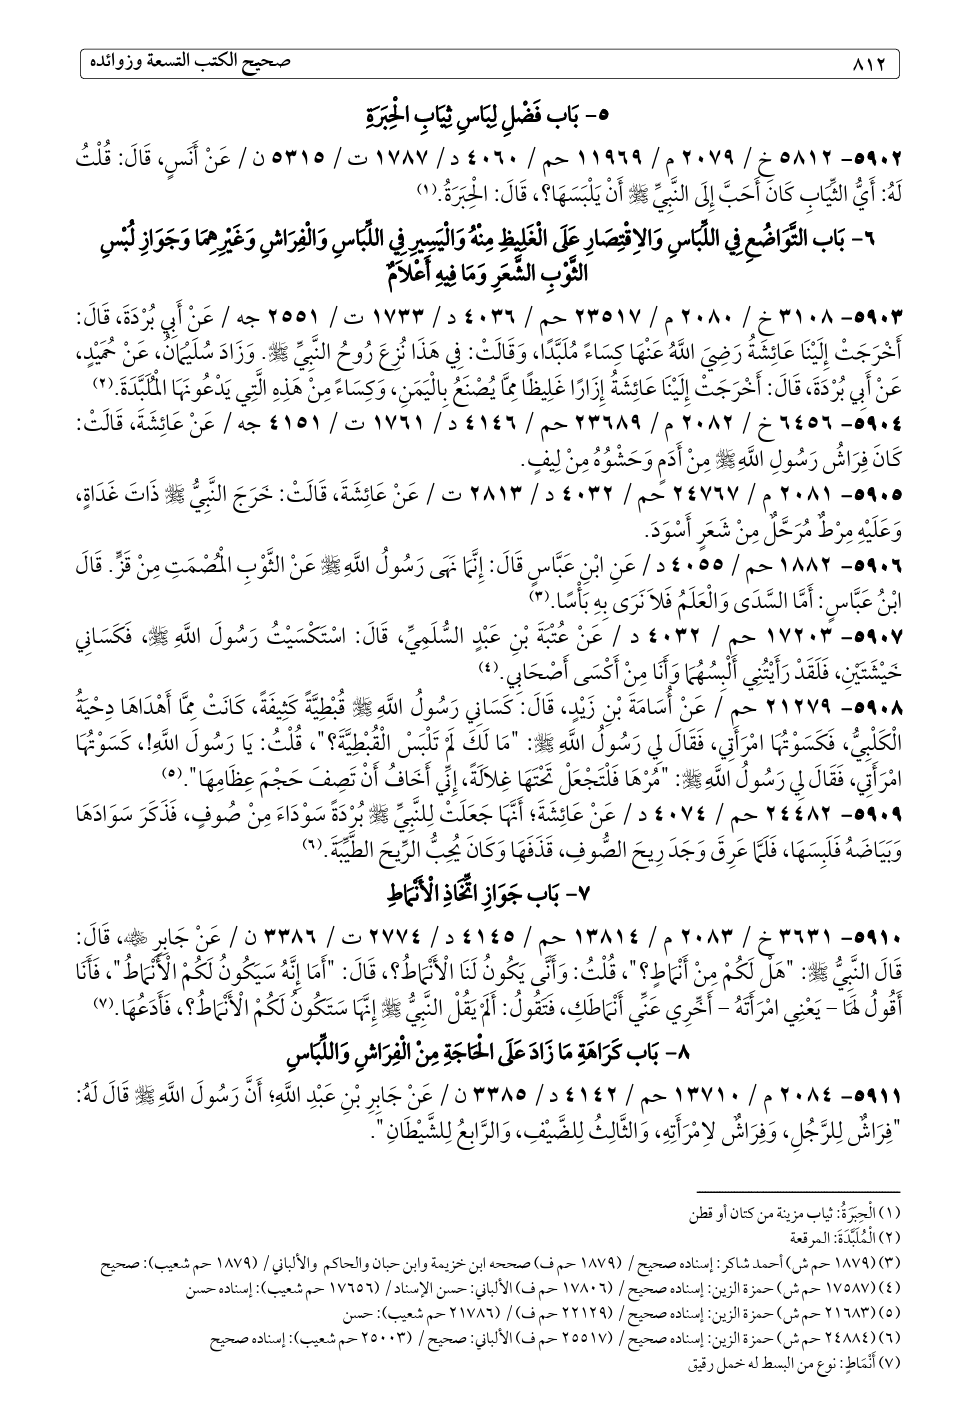 ٨١٢
صحيح الكتب التسعة وزوائده
٥- بَاب فَضْلِ لِبَاسِ ثِيَابِ الْحِبَرَةِ
٥٩٠٢- ٥٨١٢ خ/ ٢٠٧٩ م/ ١١٩٦٩ حم/ ٤٠٦٠ د/ ١٧٨٧ ت/ ٥٣١٥ ن/ عَنْ أَنَسٍ، قَالَ: قُلْتُ
لَهُ: أَيُّ الثِّيَابِ كَانَ أَحَبَّ إِلَى النَّبِيِّ ﷺ أَنْ يَلْبَسَهَا؟، قَالَ: الْحِبَرَةُ.(١)
٦- بَاب التَّوَاضُعِ فِي اللِّبَاسِ وَالِاقْتِصَارِ عَلَى الْغَلِيظِ مِنْهُ وَالْيَسِيرِ فِي اللِّبَاسِ وَالْفِرَاشِ وَغَيْرِهِمَا وَجَوَازِ لُبْسِ
الثَّوْبِ الشَّعَرِ وَمَا فِيهِ أَعْلَامٌ
٥٩٠٣- ٣١٠٨ خ/ ٢٠٨٠ م/ ٢٣٥١٧ حم/ ٤٠٣٦ د/ ١٧٣٣ ت/ ٢٥٥١ جه/ عَنْ أَبِي بُرْدَةَ، قَالَ:
أَخْرَجَتْ إِلَيْنَا عَائِشَةُ رَضِيَ اللَّهُ عَنْهَا كِسَاءً مُلَبَّدًا، وَقَالَتْ: فِي هَذَا نُزِعَ رُوحُ النَّبِيِّ ﷺ. وَزَادَ سُلَيْمَانُ، عَنْ حُمَيْدٍ،
عَنْ أَبِي بُرْدَةَ، قَالَ: أَخْرَجَتْ إِلَيْنَا عَائِشَةُ إِزَارًا غَلِيظًا مِمَّا يُصْنَعُ بِالْيَمَنِ، وَكِسَاءً مِنْ هَذِهِ الَّتِي يَدْعُونَهَا الْمُلَبَّدَةَ.(٢)
٥٩٠٤- ٦٤٥٦ خ/ ٢٠٨٢ م/ ٢٣٦٨٩ حم/ ٤١٤٦ د/ ١٧٦١ ت/ ٤١٥١ جه/ عَنْ عَائِشَةَ، قَالَتْ:
كَانَ فِرَاشُ رَسُولِ اللَّهِ ﷺ مِنْ أَدَمٍ وَحَشْوُهُ مِنْ لِيفٍ.
٥٩٠٥- ٢٠٨١ م/ ٢٤٧٦٧ حم/ ٤٠٣٢ د/ ٢٨١٣ ت/ عَنْ عَائِشَةَ، قَالَتْ: خَرَجَ النَّبِيُّ ﷺ ذَاتَ غَدَاةٍ،
وَعَلَيْهِ مِرْطٌ مُرَحَّلٌ مِنْ شَعَرٍ أَسْوَدَ.
٥٩٠٦- ١٨٨٢ حم/ ٤٠٥٥ د/ عَنِ ابْنِ عَبَّاسٍ قَالَ: إِنَّمَا نَهَى رَسُولُ اللَّهِ ﷺ عَنْ الثَّوْبِ الْمُصْمَتِ مِنْ قَزٍّ. قَالَ
ابْنُ عَبَّاسٍ: أَمَّا السَّدَى وَالْعَلَمُ فَلَا نَرَى بِهِ بَأْسًا.(٣)
٥٩٠٧- ١٧٢٠٣ حم/ ٤٠٣٢ د/ عَنْ عُتْبَةَ بْنِ عَبْدٍ السُّلَمِيِّ، قَالَ: اسْتَكْسَيْتُ رَسُولَ اللَّهِ ﷺ، فَكَسَانِي
خَيْشَتَيْنِ، فَلَقَدْ رَأَيْتُنِي أَلْبِسُهُمَا وَأَنَا مِنْ أَكْسَى أَصْحَابِي.(٤)
٥٩٠٨- ٢١٢٧٩ حم/ عَنْ أُسَامَةَ بْنِ زَيْدٍ، قَالَ: كَسَانِي رَسُولُ اللَّهِ ﷺ قُبْطِيَّةً كَثِيفَةً، كَانَتْ مِمَّا أَهْدَاهَا دِحْيَةُ
الْكَلْبِيُّ، فَكَسَوْتُهَا امْرَأَتِي، فَقَالَ لِي رَسُولُ اللَّهِ ﷺ: "مَا لَكَ لَمْ تَلْبَسْ الْقُبْطِيَّةَ؟"، قُلْتُ: يَا رَسُولَ اللَّهِ!، كَسَوْتُهَا
امْرَأَتِي، فَقَالَ لِي رَسُولُ اللَّهِ ﷺ: "مُرْهَا فَلْتَجْعَلْ تَحْتَهَا غِلَالَةً، إِنِّي أَخَافُ أَنْ تَصِفَ حَجْمَ عِظَامِهَا".(٥)
٥٩٠٩- ٢٤٤٨٢ حم/ ٤٠٧٤ د/ عَنْ عَائِشَةَ؛ أَنَّهَا جَعَلَتْ لِلنَّبِيِّ ﷺ بُرْدَةً سَوْدَاءَ مِنْ صُوفٍ، فَذَكَرَ سَوَادَهَا
وَبَيَاضَهُ فَلَبِسَهَا، فَلَمَّا عَرِقَ وَجَدَ رِيحَ الصُّوفِ، قَذَفَهَا وَكَانَ يُحِبُّ الرِّيحَ الطَّيِّبَةَ.(٦)
٧- بَاب جَوَازِ اتِّخَاذِ الْأَنْمَاطِ
٥٩١٠- ٣٦٣١ خ/ ٢٠٨٣ م/ ١٣٨١٤ حم/ ٤١٤٥ د/ ٢٧٧٤ ت/ ٣٣٨٦ ن/ عَنْ جَابِرٍ ﵁، قَالَ:
قَالَ النَّبِيُّ ﷺ: "هَلْ لَكُمْ مِنْ أَنْمَاطٍ؟"، قُلْتُ: وَأَنَّى يَكُونُ لَنَا الْأَنْمَاطُ؟، قَالَ: "أَمَا إِنَّهُ سَيَكُونُ لَكُمْ الْأَنْمَاطُ"، فَأَنَا
أَقُولُ لَهَا - يَعْنِي امْرَأَتَهُ - أَخِّرِي عَنِّي أَنْمَاطَكِ، فَتَقُولُ: أَلَمْ يَقُلْ النَّبِيُّ ﷺ إِنَّهَا سَتَكُونُ لَكُمْ الْأَنْمَاطُ؟، فَأَدَعُهَا.(٧)
٨- بَاب كَرَاهَةِ مَا زَادَ عَلَى الْحَاجَةِ مِنْ الْفِرَاشِ وَاللِّبَاسِ
٥٩١١- ٢٠٨٤ م/ ١٣٧١٠ حم/ ٤١٤٢ د/ ٣٣٨٥ ن/ عَنْ جَابِرِ بْنِ عَبْدِ اللَّهِ؛ أَنَّ رَسُولَ اللَّهِ ﷺ قَالَ لَهُ:
"فِرَاشٌ لِلرَّجُلِ، وَفِرَاشٌ لِامْرَأَتِهِ، وَالثَّالِثُ لِلضَّيْفِ، وَالرَّابِعُ لِلشَّيْطَانِ".
(١) الْحِبَرَةُ: ثياب مزينة من كتان أو قطن
(٢) الْمُلَبَّدَةَ: المرقعة
(٣) (١٨٧٩ حم ش) أحمد شاكر: إسناده صحيح/ (١٨٧٩ حم ف) صححه ابن خزيمة وابن حبان والحاكم والألباني/ (١٨٧٩ حم شعيب): صحيح
(٤) (١٧٥٨٧ حم ش) حمزة الزين: إسناده صحيح/ (١٧٨٠٦ حم ف) الألباني: حسن الإسناد/ (١٧٦٥٦ حم شعيب): إسناده حسن
(٥) (٢١٦٨٣ حم ش) حمزة الزين: إسناده صحيح/ (٢٢١٢٩ حم ف)/ (٢١٧٨٦ حم شعيب): حسن
(٦) (٢٤٨٨٤ حم ش) حمزة الزين: إسناده صحيح/ (٢٥٥١٧ حم ف) الألباني: صحيح/ (٢٥٠٠٣ حم شعيب): إسناده صحيح
(٧) أَنْمَاطٍ: نوع من البسط له خمل رقيق